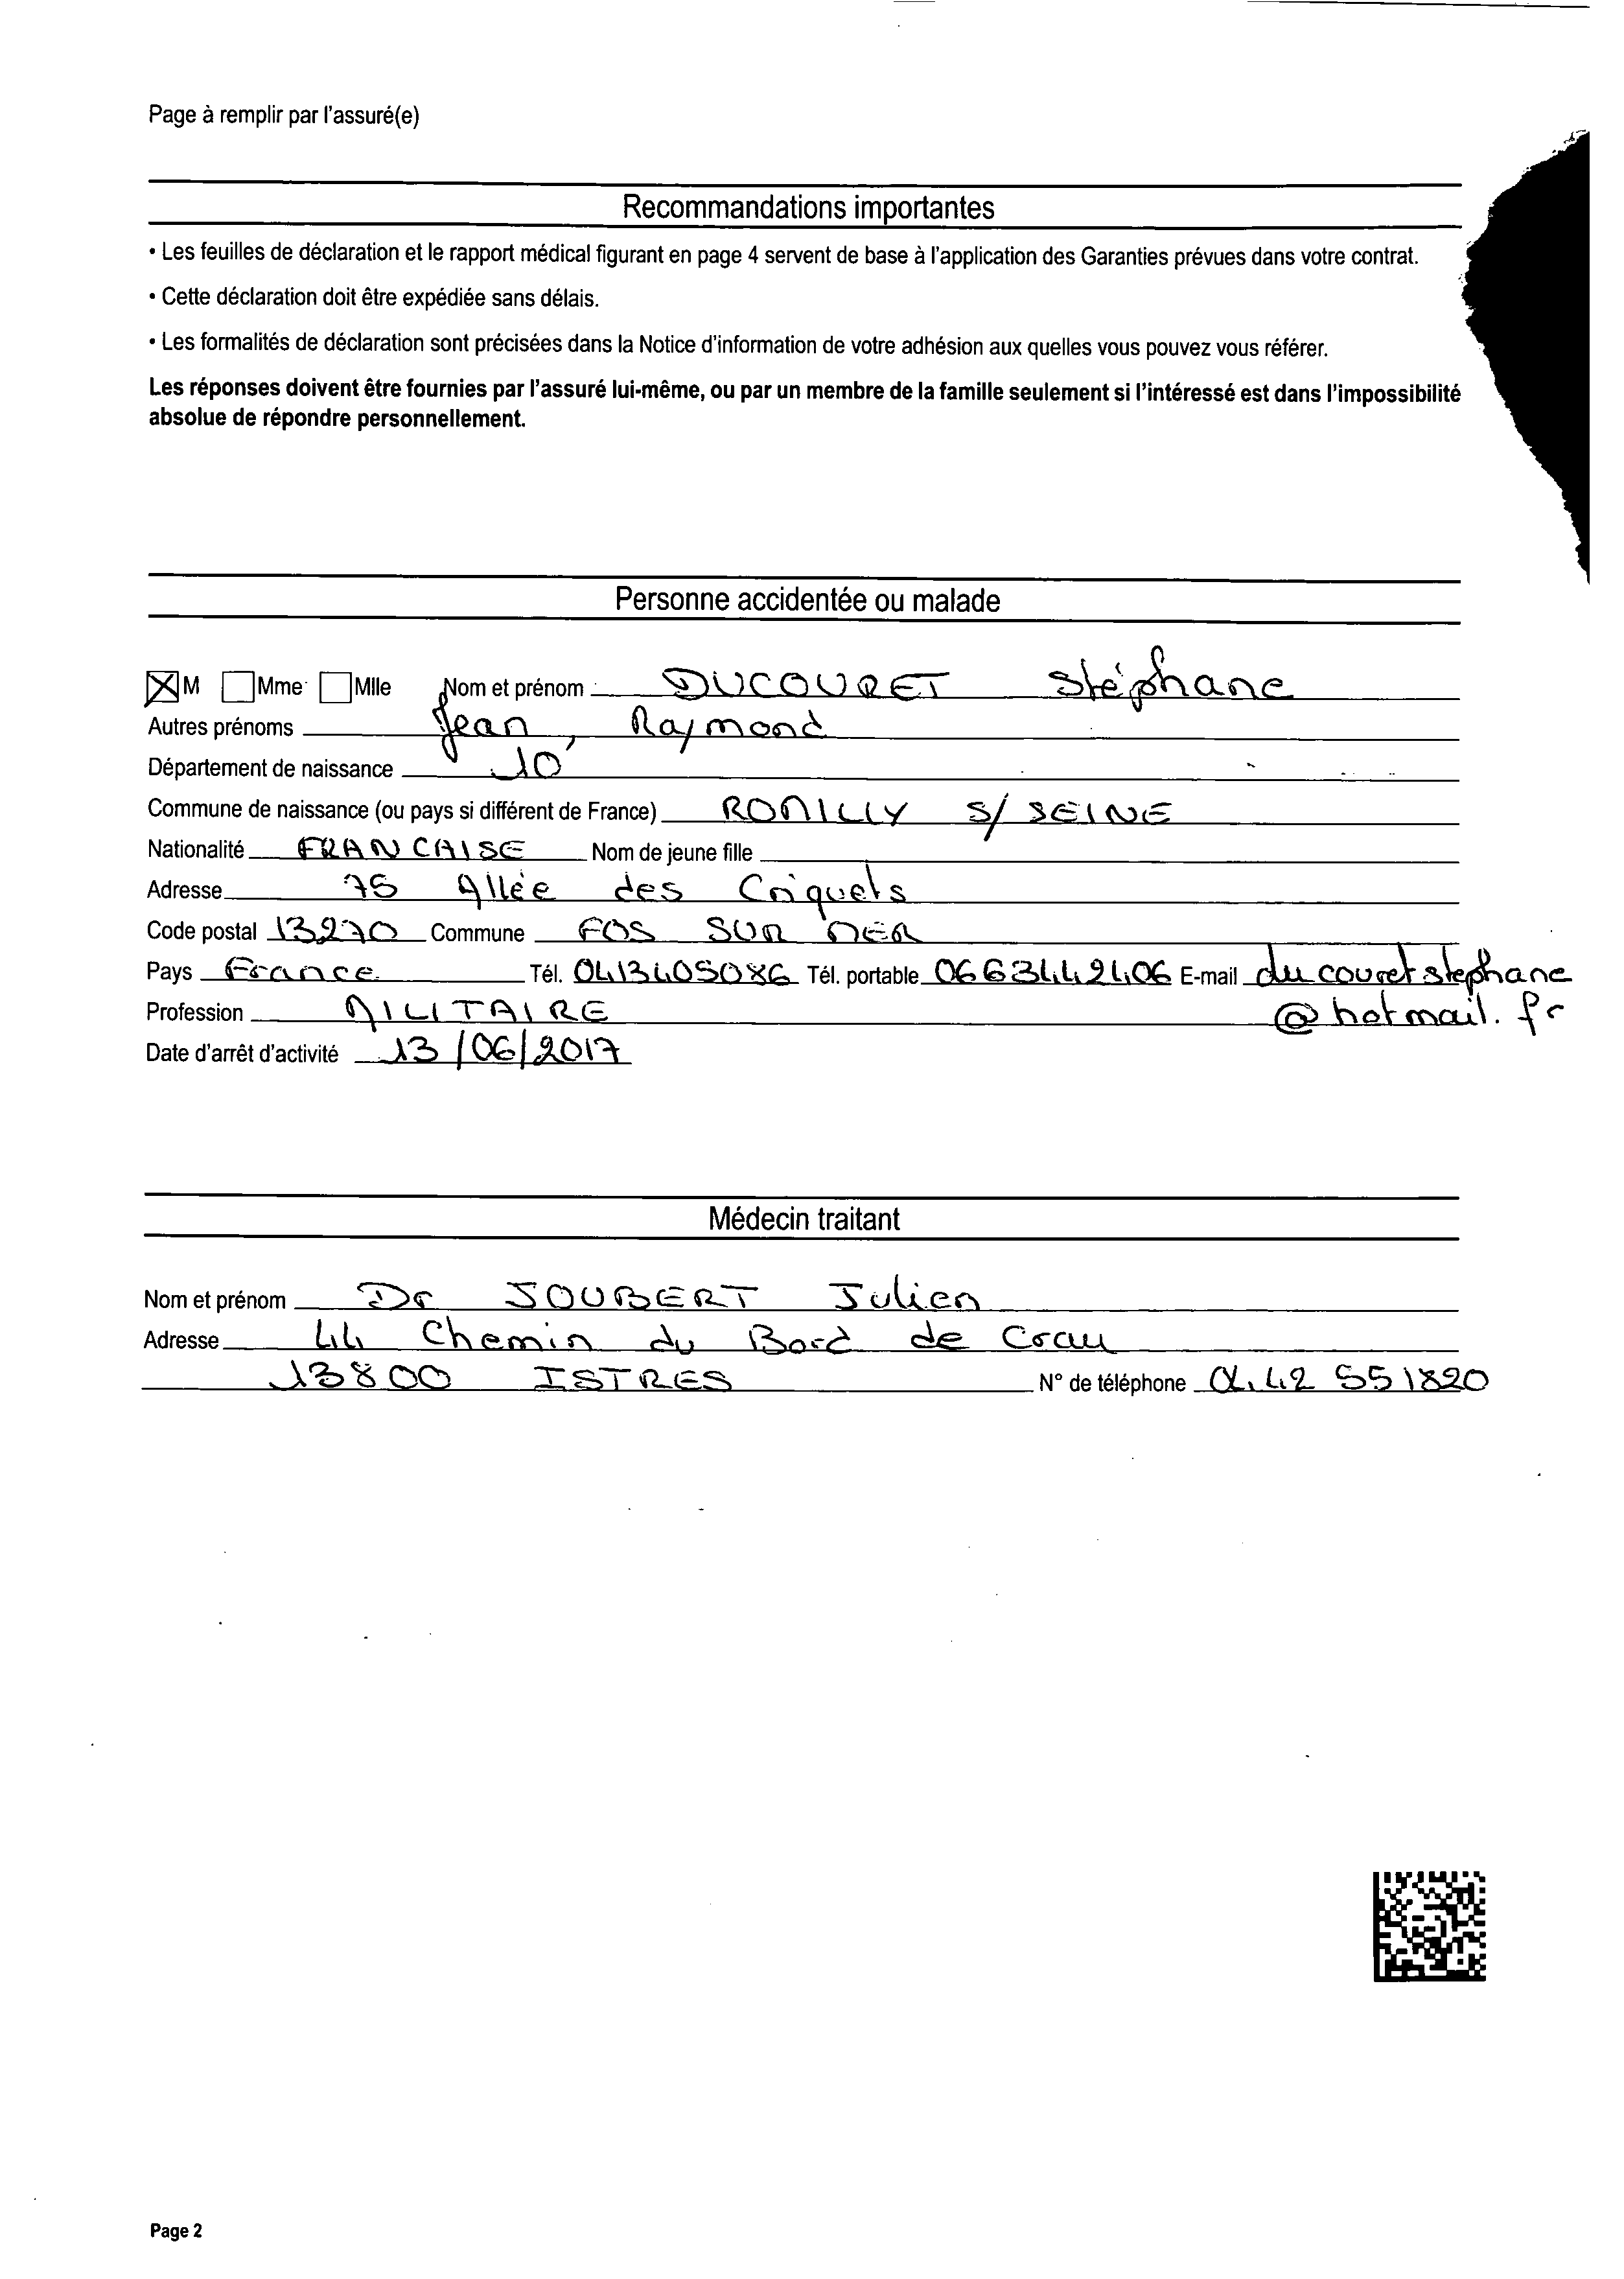 Page à remplir par l'assuré(e)
Recommandations importantes
• Les feuilles de déclaration et le rapport médical figurant en page 4 servent de base à l'application des Garanties prévues dans votre contrat.
• Cette déclaration doit être expédiée sans délais.
• Les formalités de déclaration sont précisées dans la Notice d'information de votre adhésion aux quelles vous pouvez vous référer.
Les réponses doivent être fournies par l'assuré lui-même, ou par un membre de la famille seulement si l'intéressé est dans l'impossibilité
absolue de répondre personnellement.
Personne accidentée ou malade
M Mme Mlle Nom et prénom DUCOURET Stéphane
Autres prénoms Jean, Raymond
Département de naissance 10
Commune de naissance (ou pays si différent de France) ROMILLY S/ SEINE
Nationalité FRANCAISE Nom de jeune fille
Adresse 75 Allée des Criquets
Code postal 13270 Commune FOS SUR MER
Pays France Tél. 0413405086 Tél. portable 0663442406 E-mail ducouretstephane
@hotmail.fr
Profession MILITAIRE
Date d'arrêt d'activité 13/06/2017
Médecin traitant
Nom et prénom Dr JOUBERT Julien
Adresse 44 Chemin du Bord de Crau
13800 ISTRES N° de téléphone 04 42 551820
Page 2